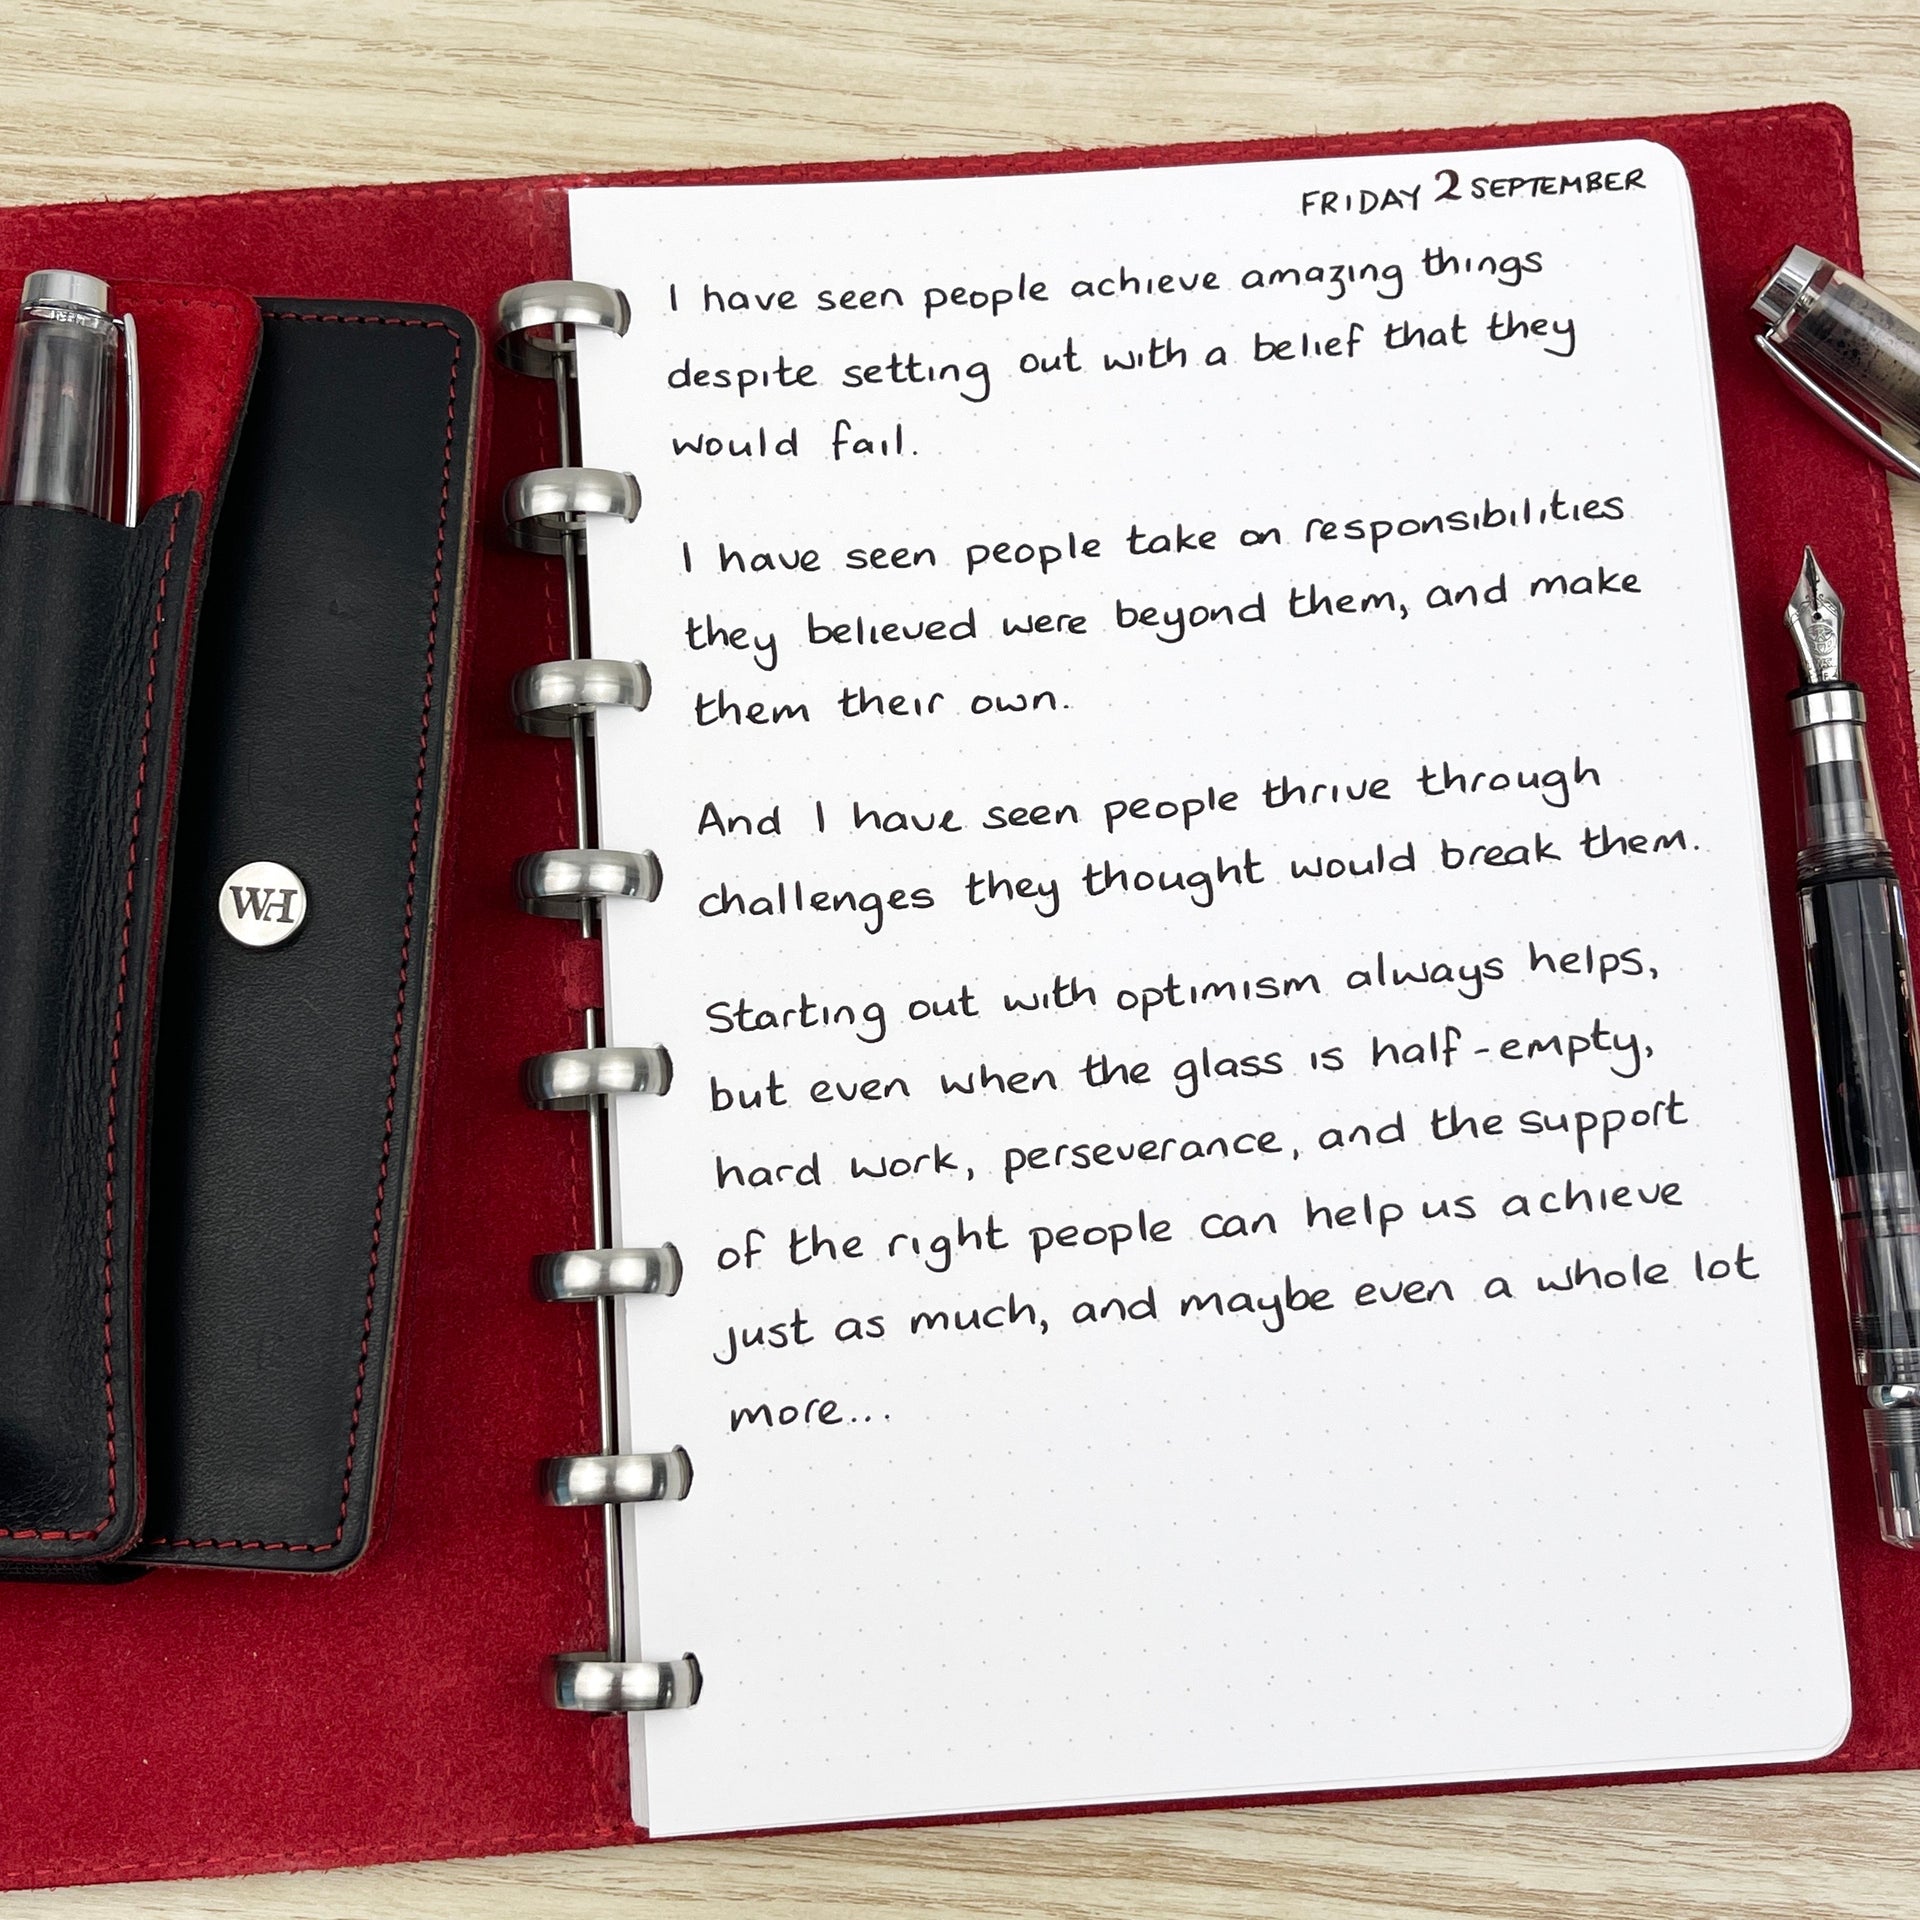 WH
FRIDAY 2 SEPTEMBER
I have seen people achieve amazing things
despite setting out with a belief that they
would fail.
I have seen people take on responsibilities
they believed were beyond them, and make
them their own.
And I have seen people thrive through
challenges they thought would break them.
Starting out with optimism always helps,
but even when the glass is half-empty,
hard work, perseverance, and the support
of the right people can help us achieve
just as much, and maybe even a whole lot
more...